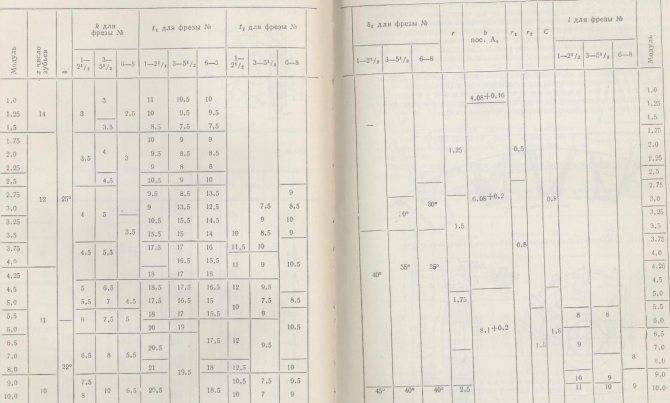 Модуль z число зубьев δ k для фрезы № t₁ для фрезы № t₂ для фрезы №
1—2¹/₂ 3—5¹/₂ 6—8 1—2¹/₂ 3—5¹/₂ 6—8 1—2¹/₂ 3—5¹/₂ 6—8
1.0 3 11 10.5 10
1.25 14 3 2.5 10 9.5 9.5
1.5 3.5 8.5 7.5 7.5
1.75 10 9 9
2.0 3.5 4 3 9.5 8.5 8.5
2.25 9 8 8
2.5 4.5 10.5 9 10
2.75 12 25° 9.5 8.5 13.5 9
3.0 4 5 9 13.5 12.5 7.5 8.5
3.25 10.5 15.5 14.5 9 10
3.5 3.5 15.5 15 14 10 8.5 9
3.75 4.5 5.5 17.5 17 16 11.5 10
4.0 16.5 15.5 11 9 10.5
4.25 18 17 16
4.5 5 6.5 18.5 17.5 16.5 12 9.5
5.0 5.5 7 4.5 17.5 16.5 15 10 7.5 8.5
5.5 11 6 7.5 5 18 17 15.5 9
6.0 20 19 10.5
6.5 20.5 17.5 12 9.5
7.0 22° 6.5 8 5.5 19.5
8.0 21 18 12.5 10
9.0 10 7.5 10.5 7.5 9.5
10.0 8 10 6.5 20.5 18.5 10 7 9
b₁ для фрезы № r b пос. A₄ r₁ r₂ C l для фрезы Модуль
1—2¹/₂ 3—5¹/₂ 6—8 1—2¹/₂ 3—5¹/₂ 6—8
4.08+0.16 1.0
— 1.25
1.5
1.75
1.25 0.5 2.0
2.25
2.5
2.75
30° 6.08+0.2 0.8 3.0
3.25
1.5 3.5
0.8 3.75
4.0
40° 35° 35° 4.25
4.5
1.75 5.0
5.5
8 6 6.0
8.1+0.2 1.6 6.5
1.5 9 7.0
8 8.0
10 9 9.0
45° 40° 40° 2.5 11 10 9 10.0